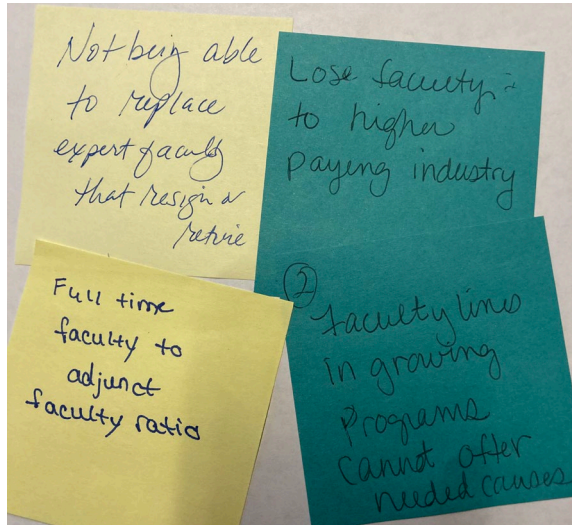 Not being able
to replace
expert faculty
that resign or
retire
Lose faculty
to higher
paying industry
Full time
faculty to
adjunct
faculty ratio
2
faculty lines
in growing
programs
cannot offer
needed causes